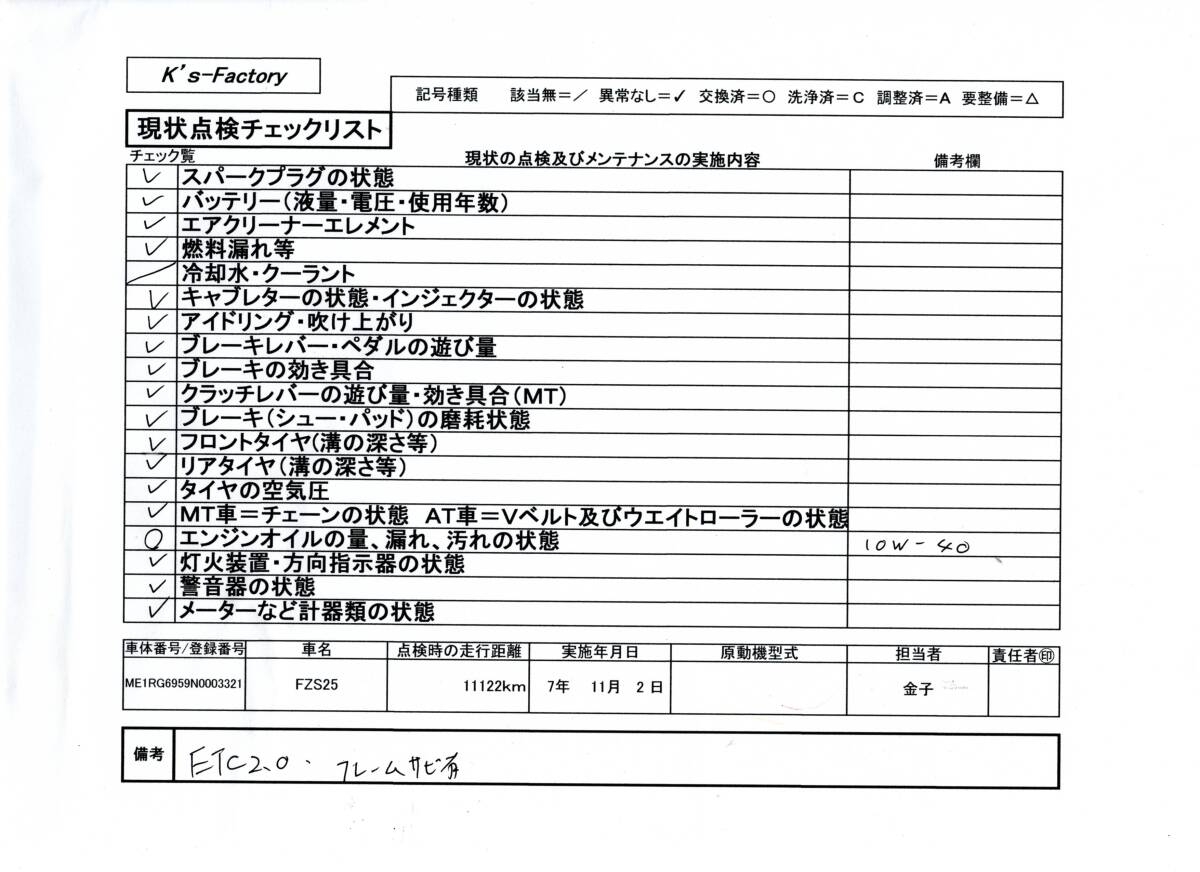 K's-Factory
記号種類 該当無=／ 異常なし=✓ 交換済=○ 洗浄済=C 調整済=A 要整備=△
現状点検チェックリスト
チェック覧 現状の点検及びメンテナンスの実施内容 備考欄
✓ スパークプラグの状態
✓ バッテリー(液量・電圧・使用年数)
✓ エアクリーナーエレメント
✓ 燃料漏れ等
／ 冷却水・クーラント
✓ キャブレターの状態・インジェクターの状態
✓ アイドリング・吹け上がり
✓ ブレーキレバー・ペダルの遊び量
✓ ブレーキの効き具合
✓ クラッチレバーの遊び量・効き具合(MT)
✓ ブレーキ(シュー・パッド)の磨耗状態
✓ フロントタイヤ(溝の深さ等)
✓ リアタイヤ(溝の深さ等)
✓ タイヤの空気圧
✓ MT車=チェーンの状態 AT車=Vベルト及びウエイトローラーの状態
○ エンジンオイルの量、漏れ、汚れの状態 10W-40
✓ 灯火装置・方向指示器の状態
✓ 警音器の状態
✓ メーターなど計器類の状態
車体番号/登録番号 車名 点検時の走行距離 実施年月日 原動機型式 担当者 責任者㊞
ME1RG6959N0003321 FZS25 11122km 7年 11月 2日 金子
備考 ETC2.0. フレームサビ有